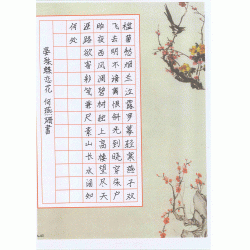 槛菊愁烟兰泣露罗幕轻寒燕子双
飞去明不谙离恨斜光到晓穿朱户
昨夜西风凋碧树独上高楼望尽天
涯路欲寄彩笺兼尺素山长水阔知
何处
晏殊蝶恋花 何書